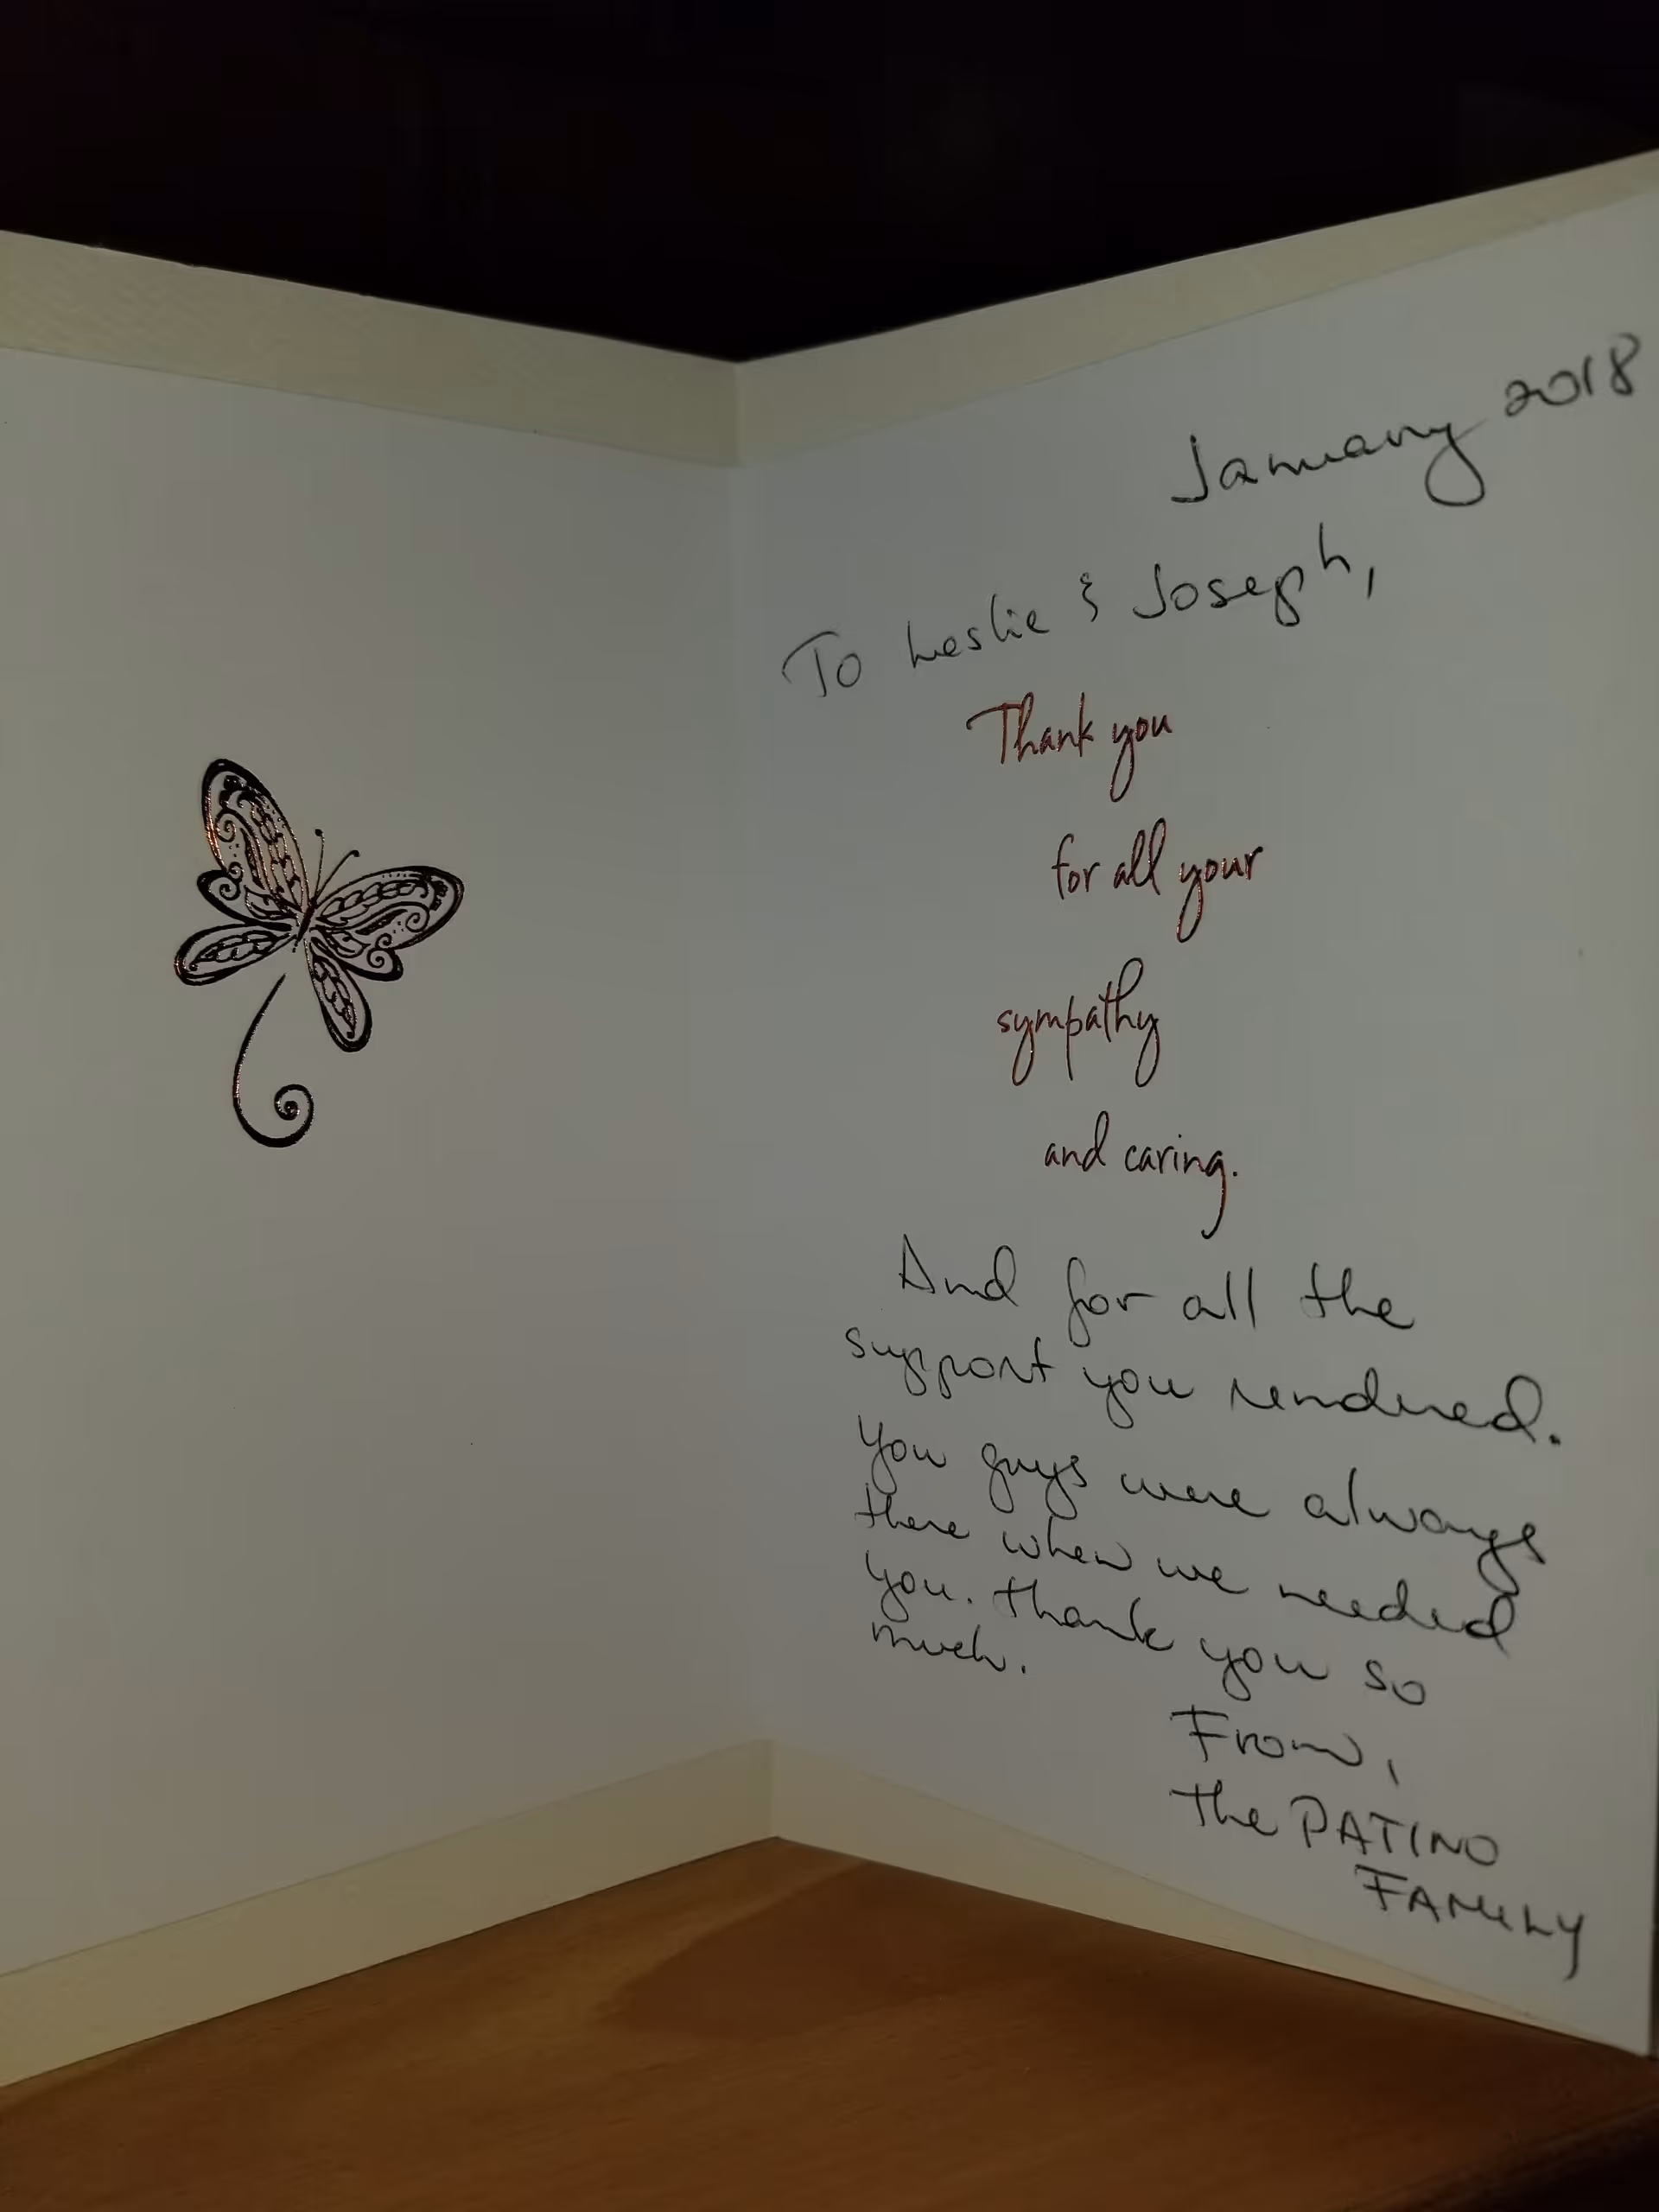 January 2018
To Leslie & Joseph,
Thank you
for all your
sympathy
and caring.
And for all the
support you rendered.
You guys were always
there when we needed
you. Thank you so
much.
From,
the PATINO
FAMILY